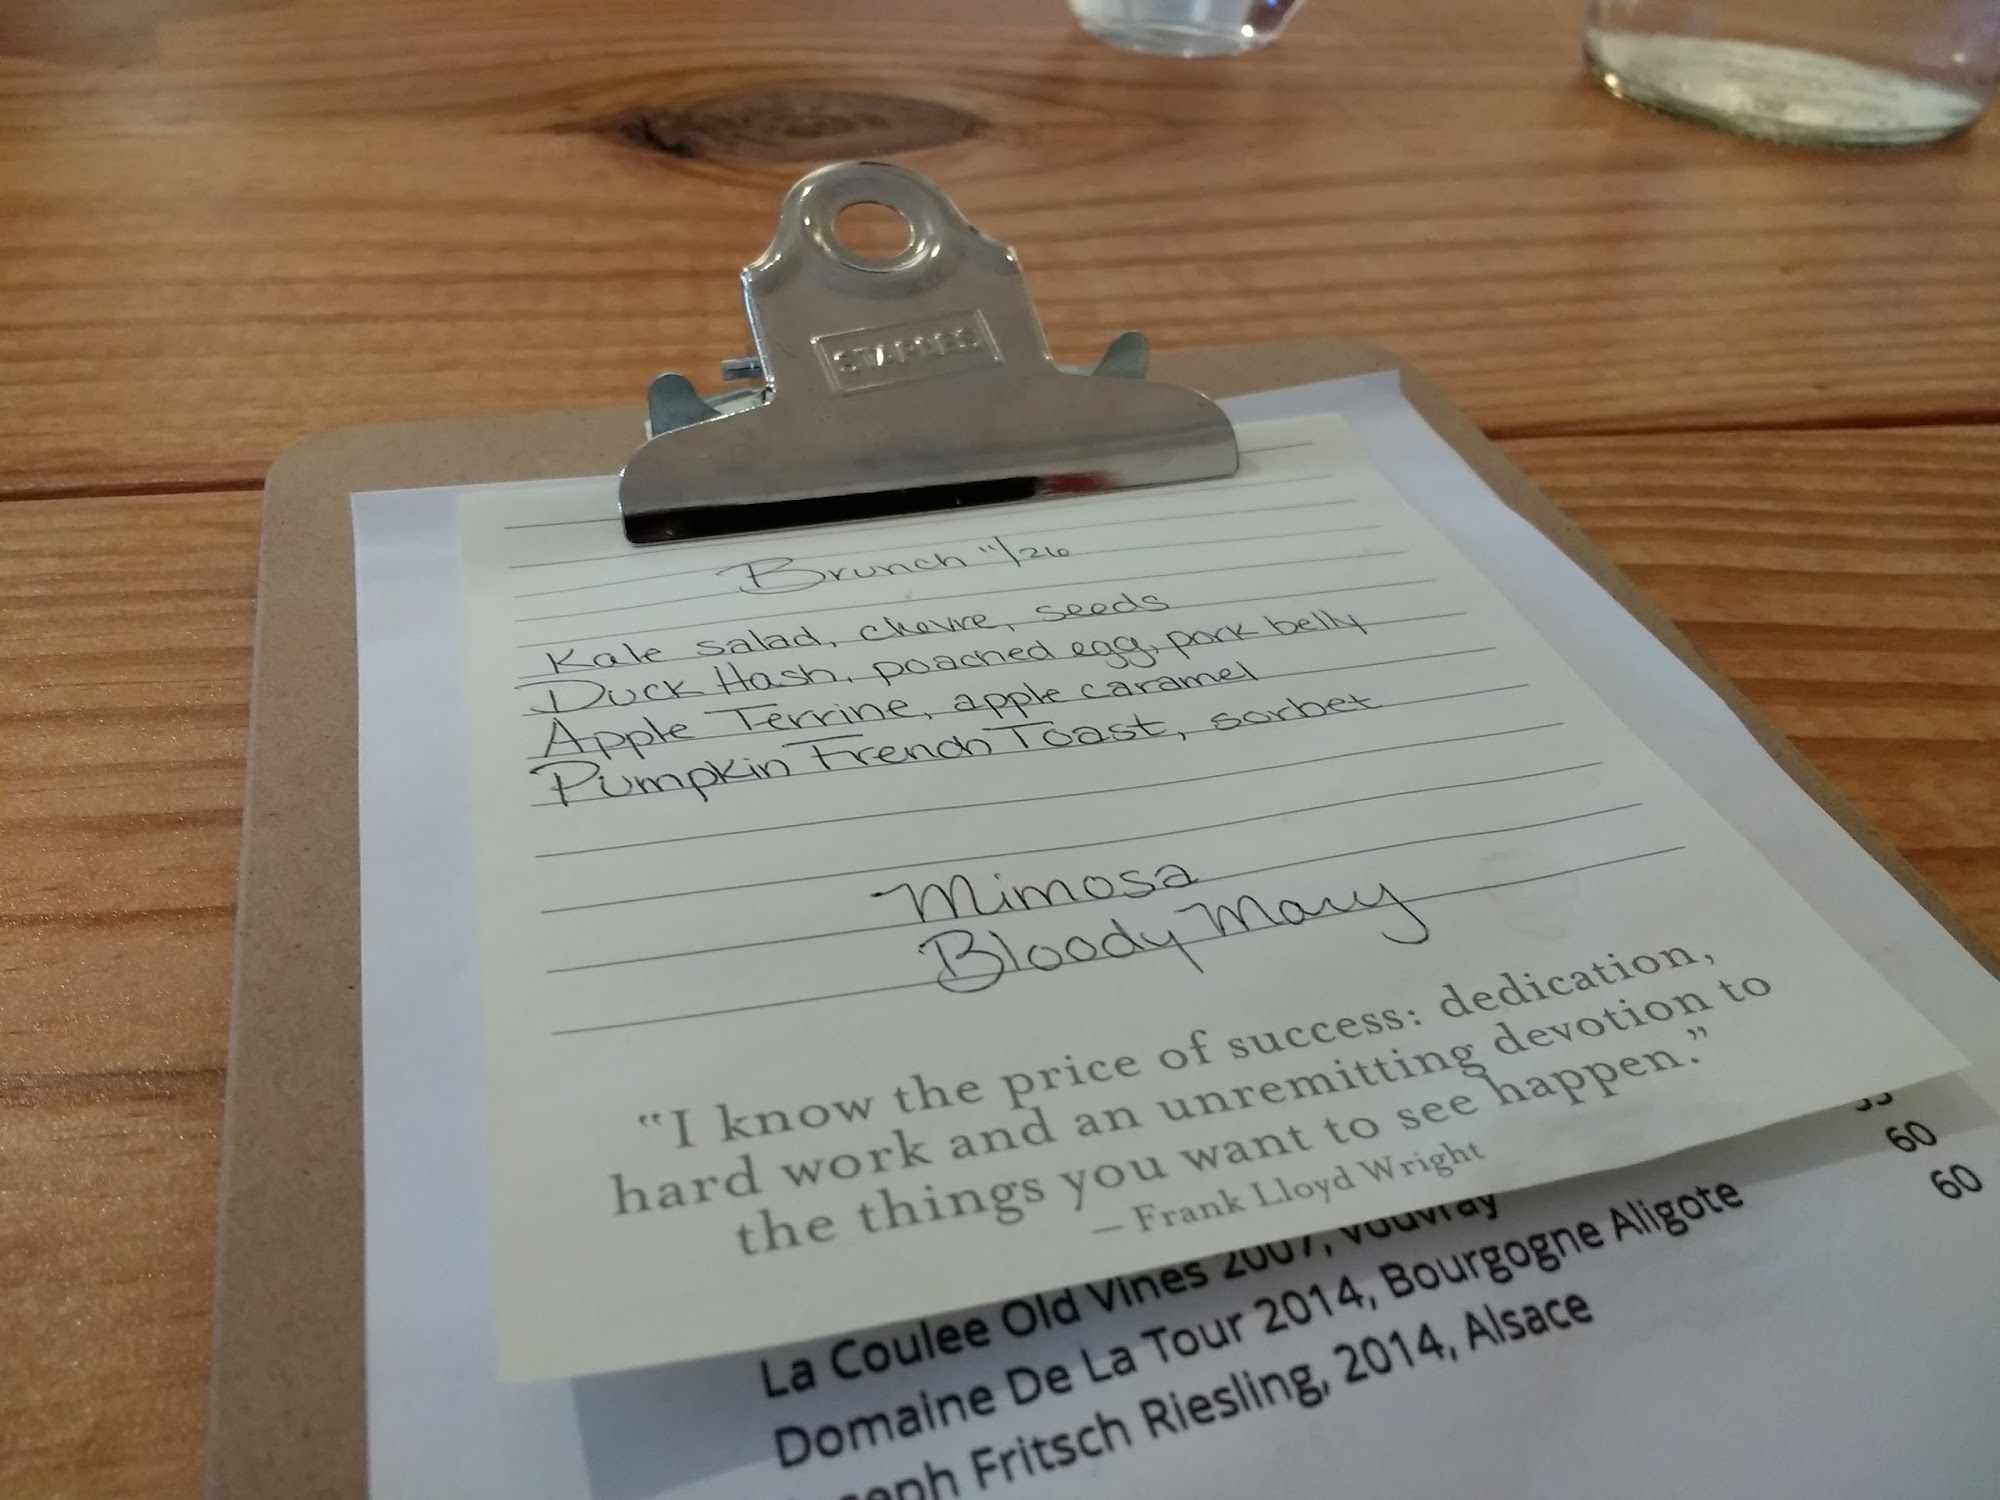 STAPLES
Brunch 11/26
Kale salad, chevre, seeds
Duck Hash, poached egg, pork belly
Apple Terrine, apple caramel
Pumpkin French Toast, sorbet
Mimosa
Bloody Mary
“I know the price of success: dedication,
hard work and an unremitting devotion to
the things you want to see happen.”
— Frank Lloyd Wright
La Coulee Old Vines 2007, Vouvray
Domaine De La Tour 2014, Bourgogne Aligote 60
Fritsch Riesling, 2014, Alsace 60